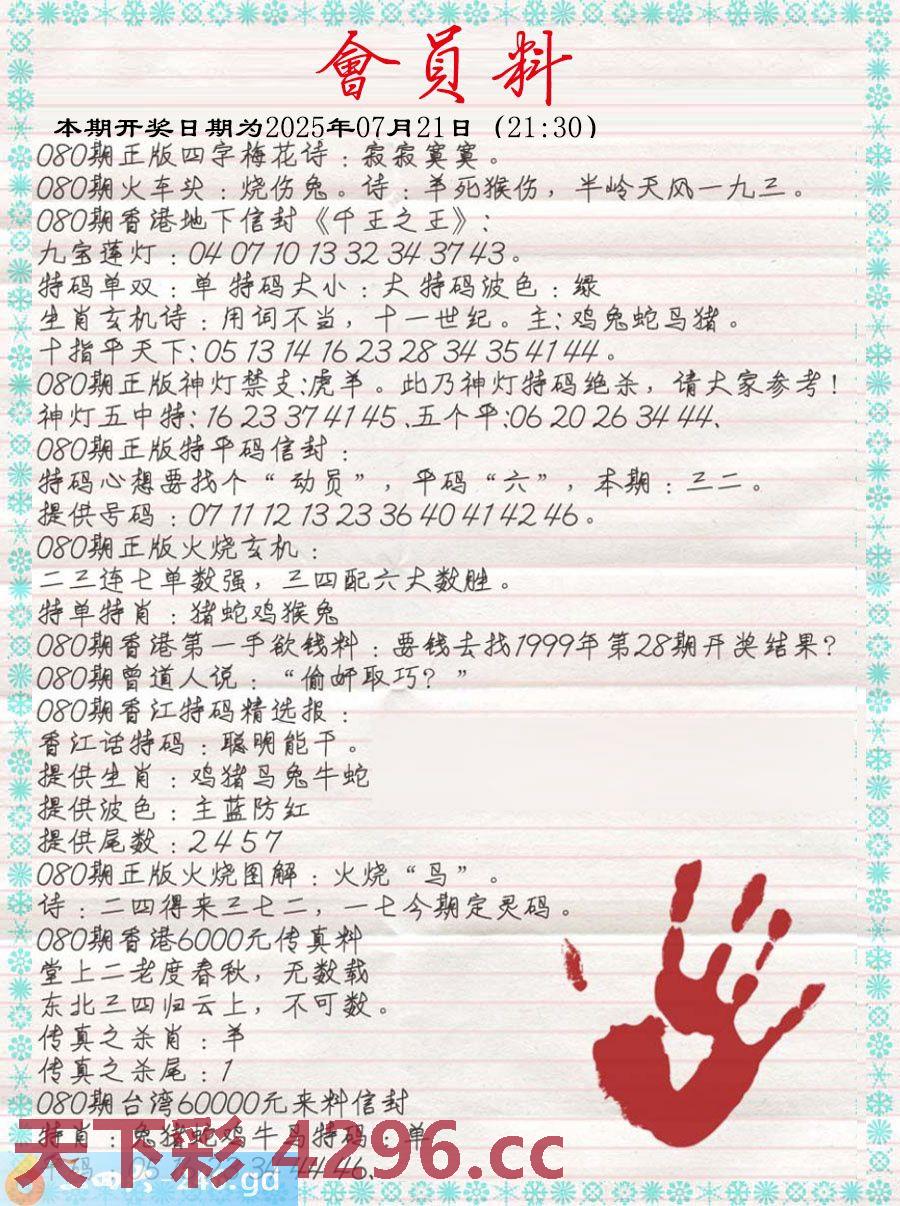 會員料
本期开奖日期为2025年07月21日（21:30）
080期正版四字梅花诗：寂寂寞寞。
080期火车头：烧伤兔。诗：羊死猴伤，半岭天风一九三。
080期香港地下信封《千王之王》：
九宝莲灯：04 07 10 13 32 34 37 43。
特码单双：单 特码大小：大 特码波色：绿
生肖玄机诗：用词不当，十一世纪。主：鸡兔蛇马猪。
十指平天下：05 13 14 16 23 28 34 35 41 44。
080期正版神灯禁支:虎羊。此乃神灯特码绝杀，请大家参考！
神灯五中特：16 23 37 41 45、五个平:06 20 26 34 44、
080期正版特平码信封：
特码心想要找个“动员”，平码“六”，本期：三二。
提供号码：07 11 12 13 23 36 40 41 42 46。
080期正版火烧玄机：
二三连七单数强，三四配六大数胜。
特单特肖：猪蛇鸡猴兔
080期香港第一手欲钱料：要钱去找1999年第28期开奖结果？
080期曾道人说：“偷奸取巧？”
080期香江特码精选报：
香江话特码：聪明能干。
提供生肖：鸡猪马兔牛蛇
提供波色：主蓝防红
提供尾数：2 4 5 7
080期正版火烧图解：火烧“鸟”。
诗：二四得来三七二，一七今期定灵码。
080期香港6000元传真料
堂上二老度春秋，无数载
东北三四归云上，不可数。
传真之杀肖：羊
传真之杀尾：1
080期台湾60000元来料信封
特肖：兔猪蛇鸡牛马特码：单
天下彩 4296.cc
44 46、
.gd